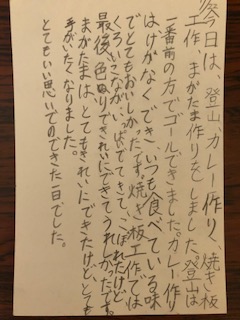 今日は、登山、カレー作り、焼き板
工作、まがたま作りをしました。登山は
一番前の方でゴールできました。カレー作り
はけがなくでき、いつも食べている味
でとてもおいしかったです。焼き板工作では
くろいこながいっぱいでてきて、こぼれたけど
最後、色ぬりできれいにできてうれしかったです。
まがたまは、とてもきれいにできたけどとても
手がいたくなりました。
とてもいい思いでのできた一日でした。